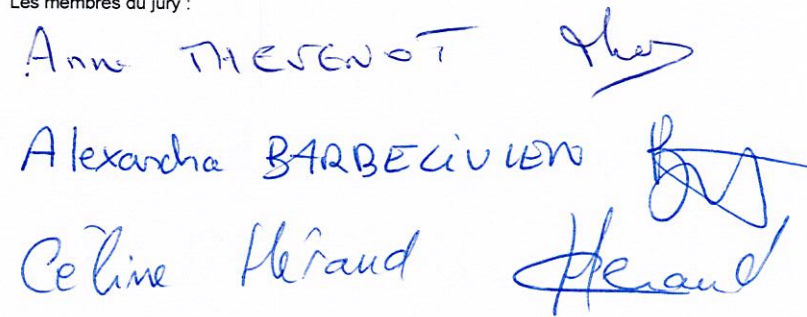 Les membres du jury :
Anne THEVENOT
Alexandra BARBELIVIEN
Céline Héraud Heraud